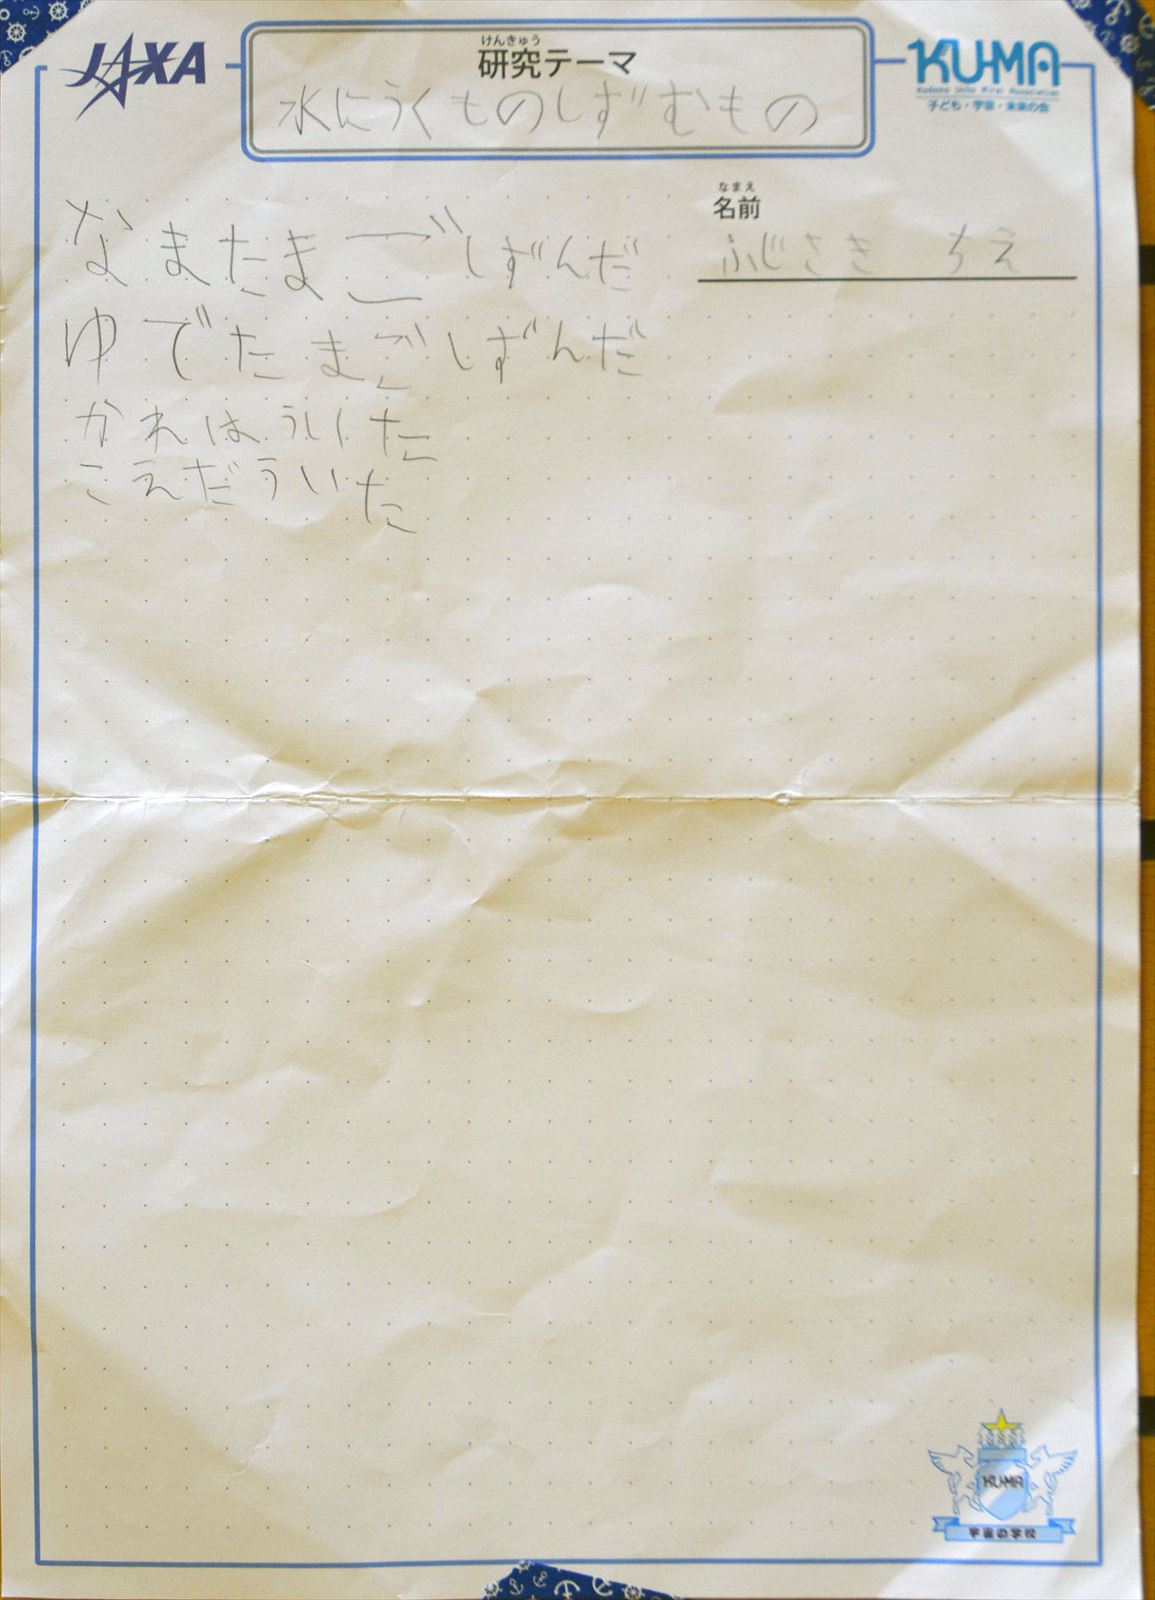 JAXA
けんきゅう
研究テーマ
水にうくものしずむもの
KU-MA
Kodomo Uchu Mirai Association
子ども・宇宙・未来の会
なまえ
名前
ふじさき ちえ
なまたまごしずんだ
ゆでたまごしずんだ
かれはういた
こえだういた
KU-MA
宇宙の学校